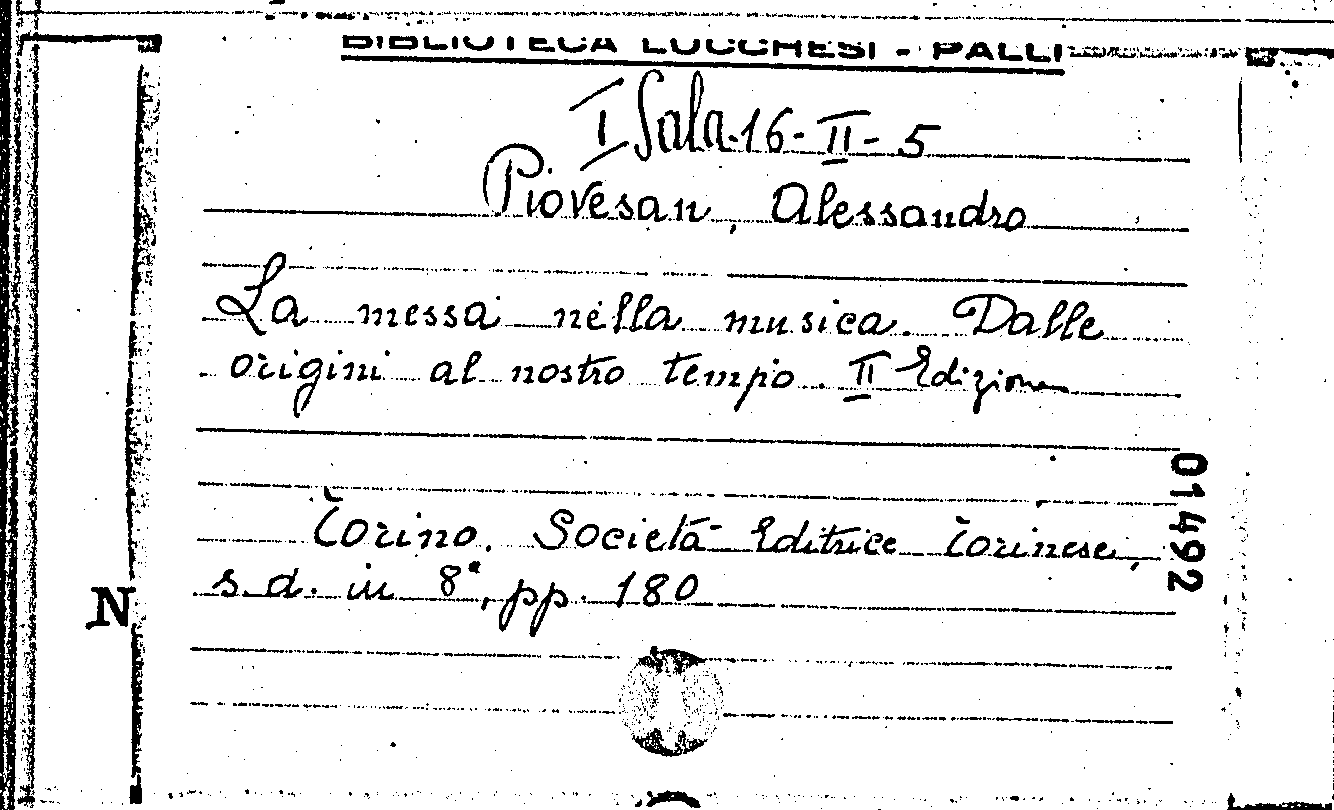 BIBLIOTECA LUCCHESI - PALLI
I Sala 16 - II - 5
Piovesan, Alessandro
La messa nella musica. Dalle
origini al nostro tempo. II Edizione
Torino. Società Editrice Torinese,
s. d. in 8°, pp. 180
01492
N